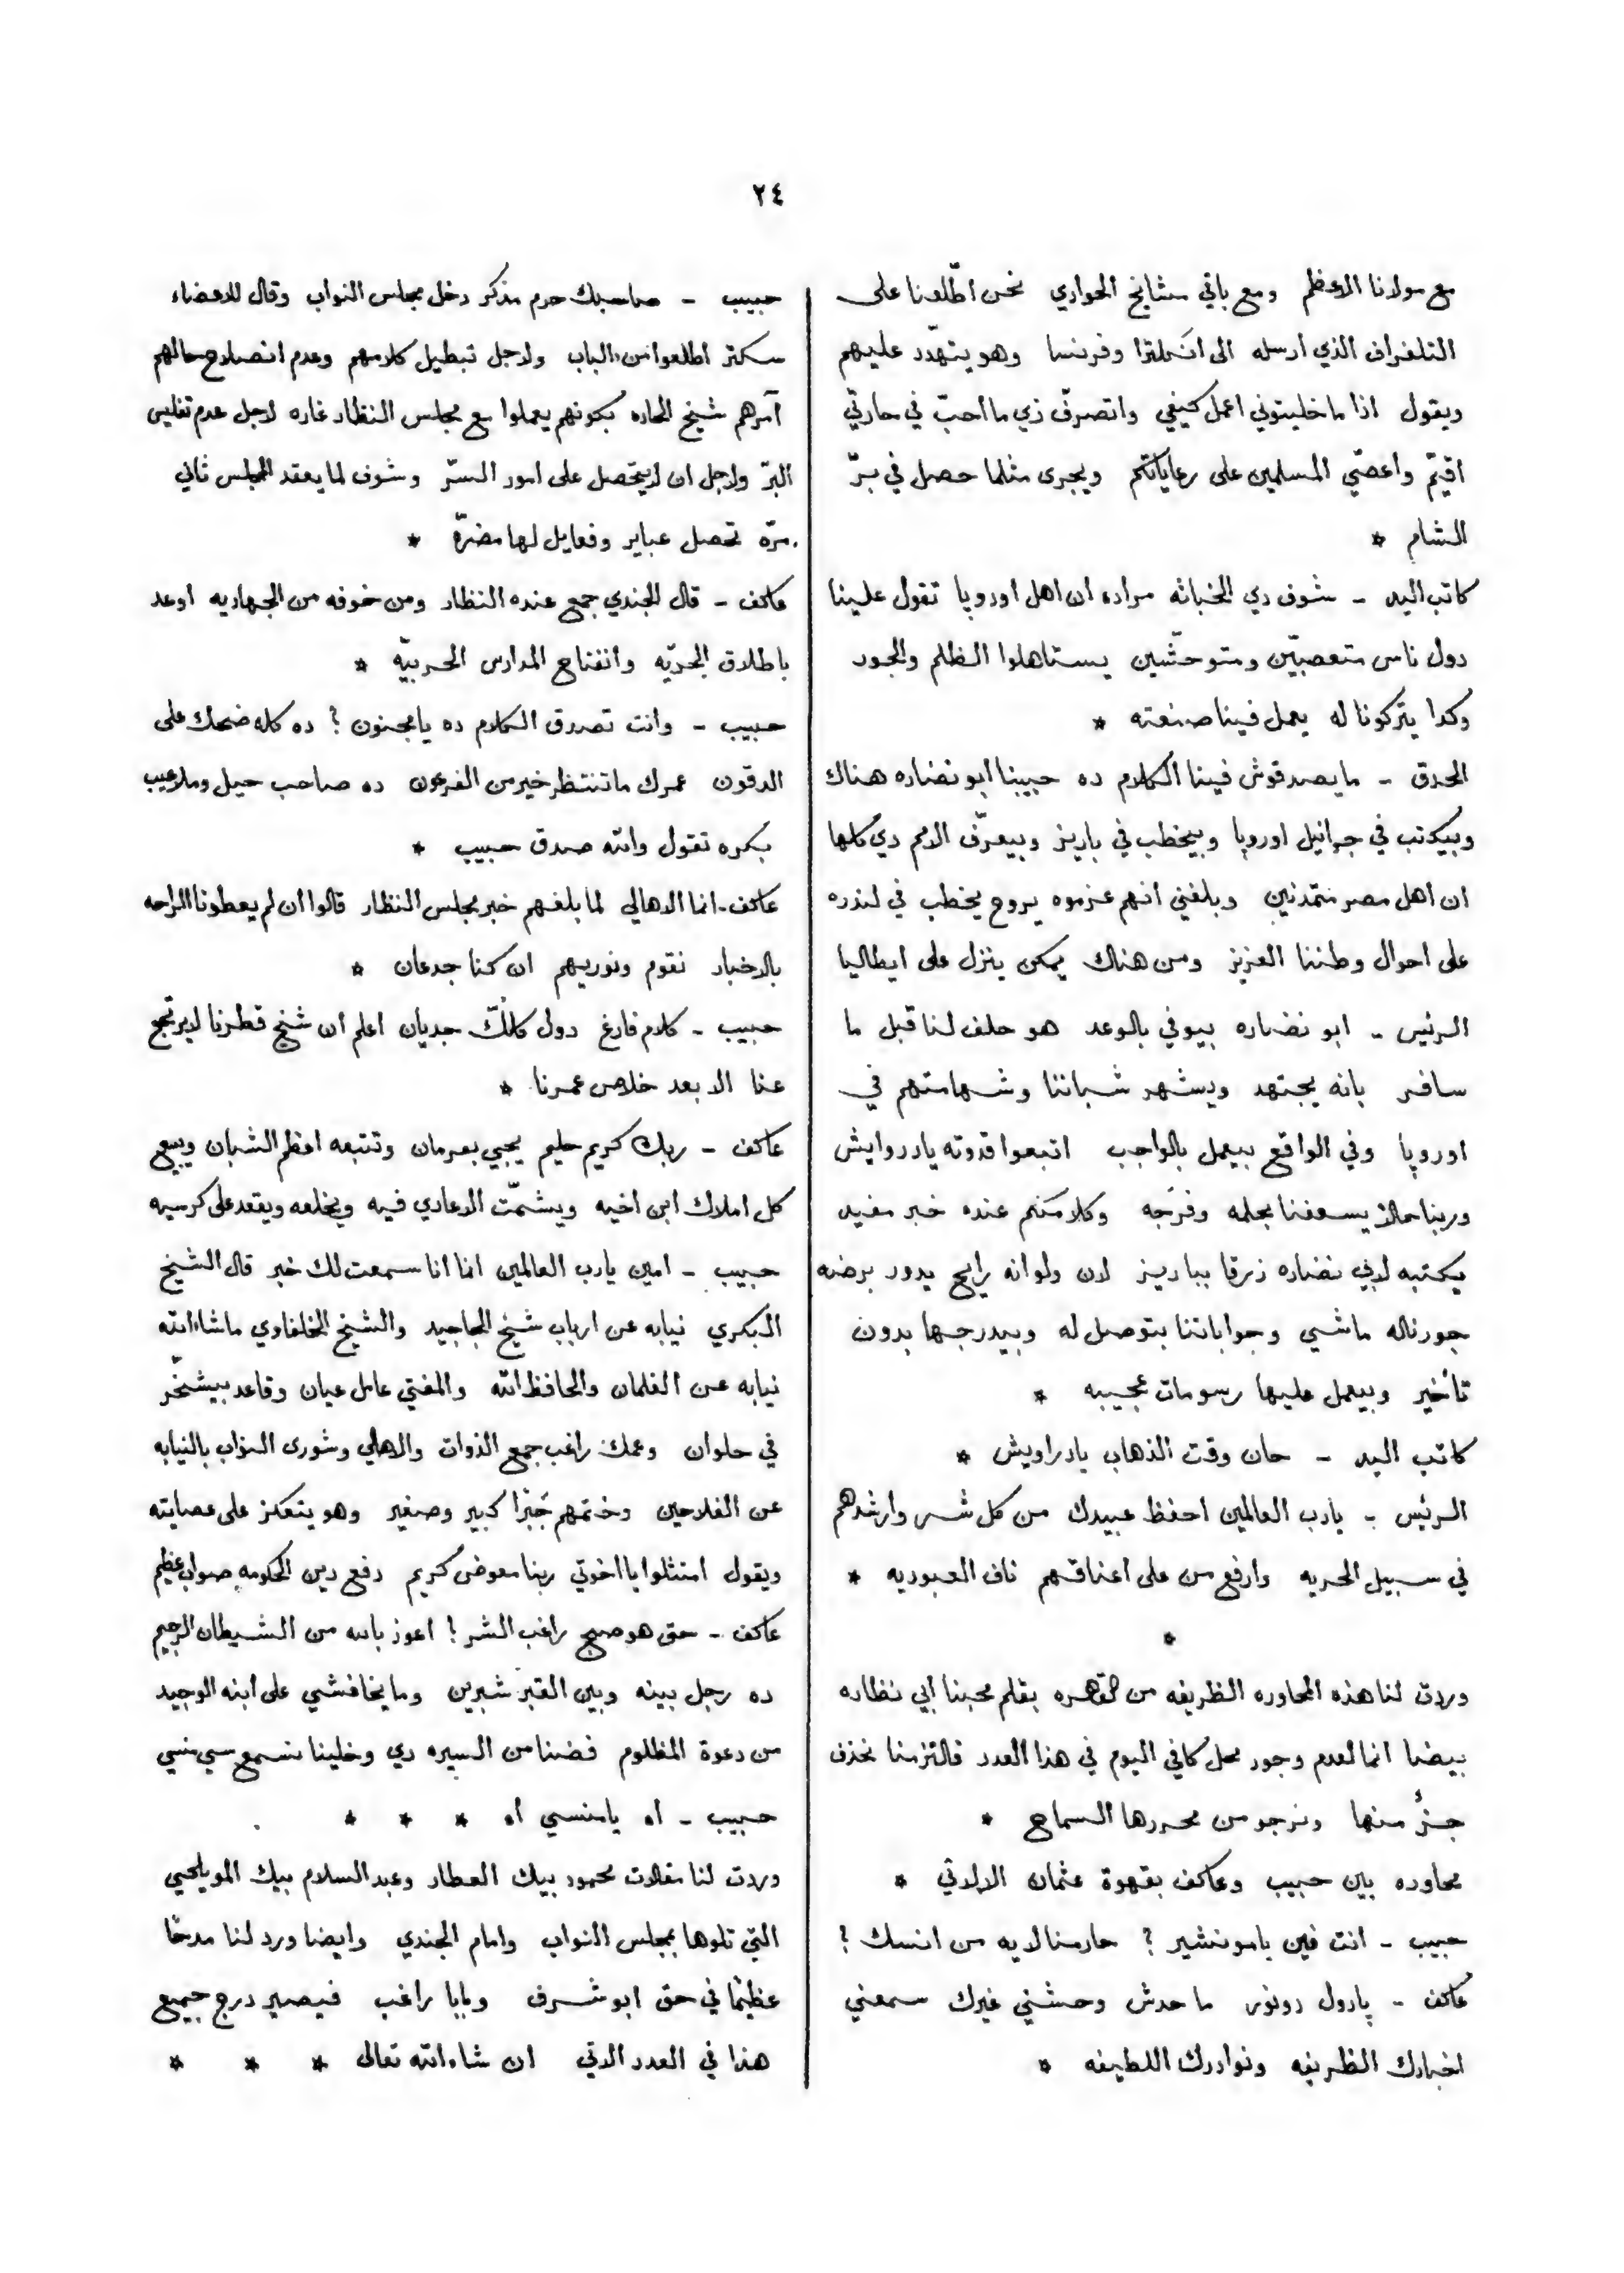 ٢٤
مع مولانا الاعظم ومع باقي مشايخ الحواري نحن اطّلعنا على
التلغراف الذي ارسله الى انكلترا وفرنسا وهو يتهدّد عليهم
ويقول اذا ما خليتوني اعمل كيفي واتصرفّ زي ما احبّ في حارتي
اقيّم واعصّي المسلمين على رعاياتكم ويجرى مثلما حصل في برّ
الشام *
كاتب اليد - شوف دي الخباثه مراده ان اهل اوروپا تقول علينا
دول ناس متعصبّين ومتوحشّين يستاهلوا الظلم والجور
وكدا يتركونا له يعمل فينا صنعته *
الحدق - ما يصدقوش فينا الكلام ده حبيبنا ابو نضاره هناك
وبيكتب في جرانيل اوروپا وبيخطب في باريز وبيعرّف الامم دي كلها
ان اهل مصر متمدّنين وبلغني انهم عزموه يروح يخطب في لندره
على احوال وطننا العزيز ومن هناك يمكن ينزل على ايطاليا
الرئيس - ابو نضاره بيوفي بالوعد هو حلف لنا قبل ما
سافر بانه يجتهد ويشهر شباننا وشهامتهم في
اوروپا وفي الواقع بيعمل بالواجب اتبعوا قدوته يا دروايش
وربنا حالاً يسعفنا بحلمه وفرَجه وكلا منكم عنده خبر مفيد
يكتبه لابي نضاره زرقا بباريز لان ولو انه رايح يدور برضه
جورناله ماشي وجواباتنا بتوصل له وبيدرجها بدون
تأخير وبيعمل عليها رسومات عجيبه *
كاتب اليد - حان وقت الذهاب يا دراويش *
الرئيس - يا رب العالمين احفظ عبيدك من كل شر وارشدهم
في سبيل الحريه وارفع من على اعناقهم ناف العبوديه *
*
وردت لنا هذه المحاوره الظريفه من القهره بقلم محبنا ابي نظاره
بيضا انما لعدم وجود محل كافي اليوم في هذا العدد فالتزمنا نحذف
جزءٌ منها ونرجو من محررها السماح *
محاوره بين حبيب وعاكف بقهوة عثمان الالاتي *
حبيب - انت فين يا مونشير ؟ حارمنا ليه من انسك ؟
عاكف - پارول دونور ما حدش وحشني غيرك سمعني
اخبارك الظريفه ونوادرك اللطيفه *
حبيب - صاحبك حرم مذكر دخل مجلس النواب وقال للاعضاء
سكتر اطلعوا من الباب ولاجل تبطيل كلامهم وعدم انصلاح حالهم
آمرهم شيخ الحاره بكونهم يعملوا مع مجلس النظار غاره لاجل عدم تفليس
البرّ ولاجل ان لا يتحّصل على امور السرّ وشوف لما يعقد المجلس ثاني
مرّة تحصل عباير وفعايل لها مضرّة *
عاكف - قال الجندي جمع عنده النظار ومن خوفه من الجهاديه اوعد
باطلاق الحريّه وانفتاح المدارس الحربيّه *
حبيب - وانت تصدق الكلام ده يا مجنون ؟ ده كله ضحك على
الدقون عمرك ما تنتظر خير من الفرعون ده صاحب حيل وملاعيب
بكره تقول والله صدق حبيب *
عاكف - انما الاهالي لما بلغهم خبر مجلس النظار قالوا ان لم يعطونا الراحه
بالاخبار نقوم ونوريهم ان كنا جدعان *
حبيب - كلام فارغ دول كلّك جديان اعلم ان شيخ قطرنا لا يرتجع
عنا الا بعد خلاص عمرنا *
عاكف - ربك كريم حليم يجيي بعرمان وتتبعه اعظم الشبان ويبيع
كل املاك ابن اخيه ويشمّت الاعادي فيه ويخلعه ويقعد على كرسيه
حبيب - امين يا رب العالمين انما انا سمعت لك خبر قال الشيخ
البكري نيابه عن ارباب شيخ المجاجيد والشيخ الخلفاوي ما شاء الله
نيابه عن الغلمان والحافظ الله والمفتي عامل عيان وقاعد بيشخّر
في حلوان وعمك راغب جمع الذوات والاهلي وشورى النواب بالنيابه
عن الفلاحين وختمهم جَبْرًا كبير وصغير وهو يتعكز على عصايته
ويقول امتثلوا يا اخوتي ربنا معوض كريم دفع دين الحكومه صواب عظيم
عاكف - حق هو صحيح راغب الشر ! اعوذ بالله من الشيطان الرجيم
ده رجل بينه وبين القبر شبرين وما يخافشي على ابنه الوحيد
من دعوة المظلوم فضنا من السيره دي وخلينا نسمع سي منسي
حبيب - اه يا منسي اه * * *
وردت لنا مقالات محمود بيك العطار وعبد السلام بيك المويلحي
التي تلوها بمجلس النواب وامام الجندي وايضا ورد لنا مدحًا
عظيمًا في حق ابو شرف وبابا راغب فيصير درج جميع
هذا في العدد الاتي ان شاء الله تعالى * * *